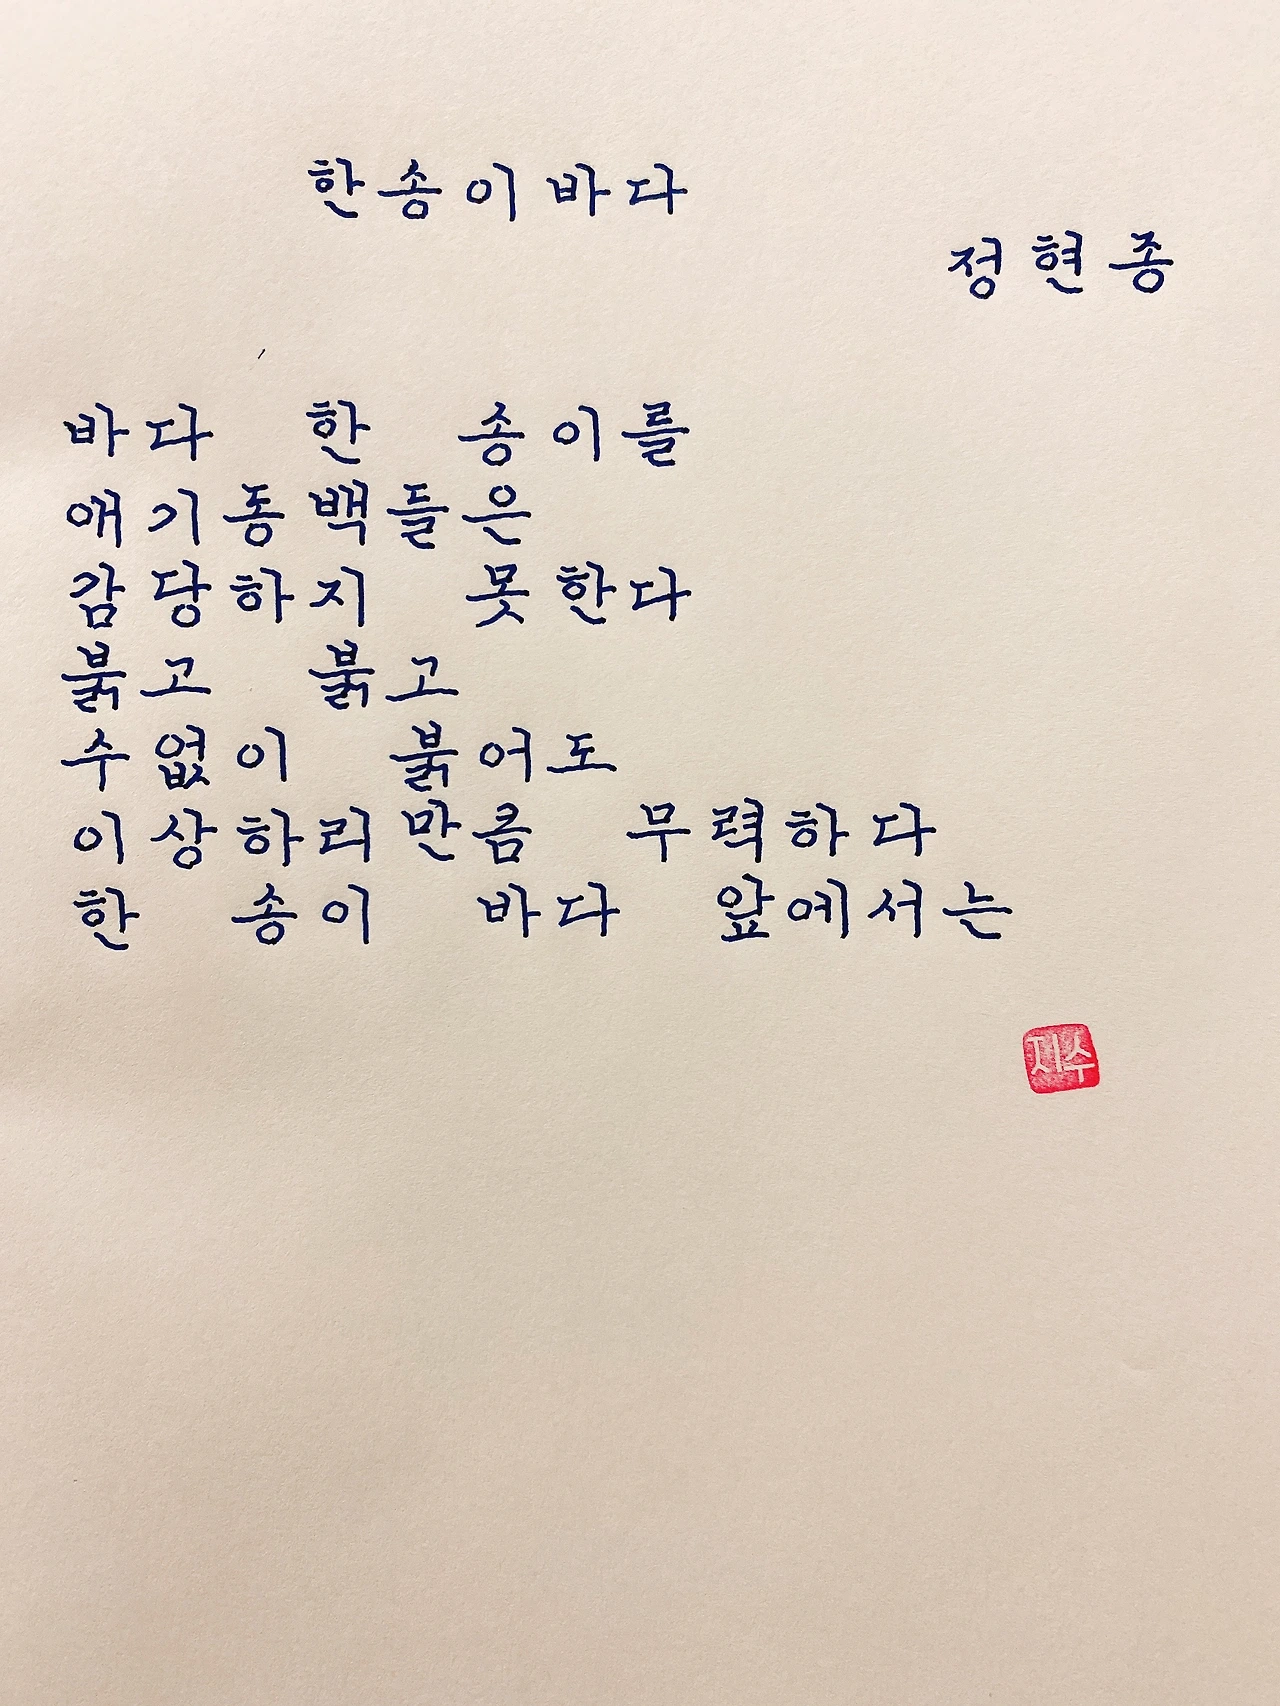 한송이바다
정현종
바다 한 송이를
애기동백들은
감당하지 못한다
붉고 붉고
수없이 붉어도
이상하리만큼 무력하다
한 송이 바다 앞에서는
지수